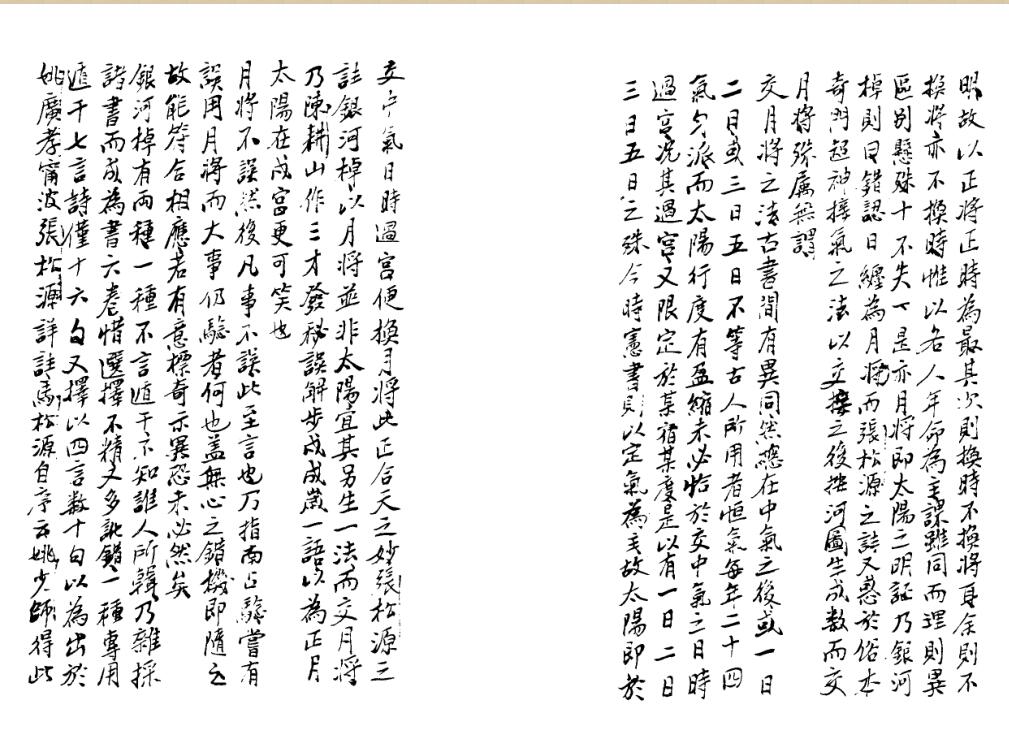 明故以正將正時為最其次則換時不換將耳余則不
換將亦不換時惟以各人年命為主課雖同而理則異
區別懸殊十不失一是亦月將即太陽之明証乃銀河
棹則曰錯認日纏為月將而張松源之註又惑於俗本
奇門超神接氣之法以交接之後按河圖生成數而交
月將殊屬無謂
交月將之法古書間有異同然總在中氣之後或一日
二日或三日五日不等古人所用者恒氣每年二十四
氣勻派而太陽行度有盈縮未必恰於交中氣之日時
過宮况其過宮又限定於某宿某度是以有一日二日
三日五日之殊今時憲書則以定氣為主故太陽即於
交中氣日時過宮便換月將此正合天之妙張松源三
註銀河棹以月將並非太陽宜其另生一法而交月將
乃陳耕山作三才發秘誤解步戍成歲一語以為正月
太陽在戍宮更可笑也
月將不誤然後凡事不誤此至言也乃指南占驗嘗有
誤用月將而大事仍驗者何也盖無心之錯機即隨之
故能符合相應若有意標奇示異恐未必然矣
銀河棹有兩種一種不言遁干不知誰人所輯乃雜採
諸書而成為書六卷惜選擇不精又多訛錯一種專用
遁干七言詩僅十六句又擇以四言数十句以為出於
姚廣孝甯波張松源詳註馬松源自序云姚少師得此